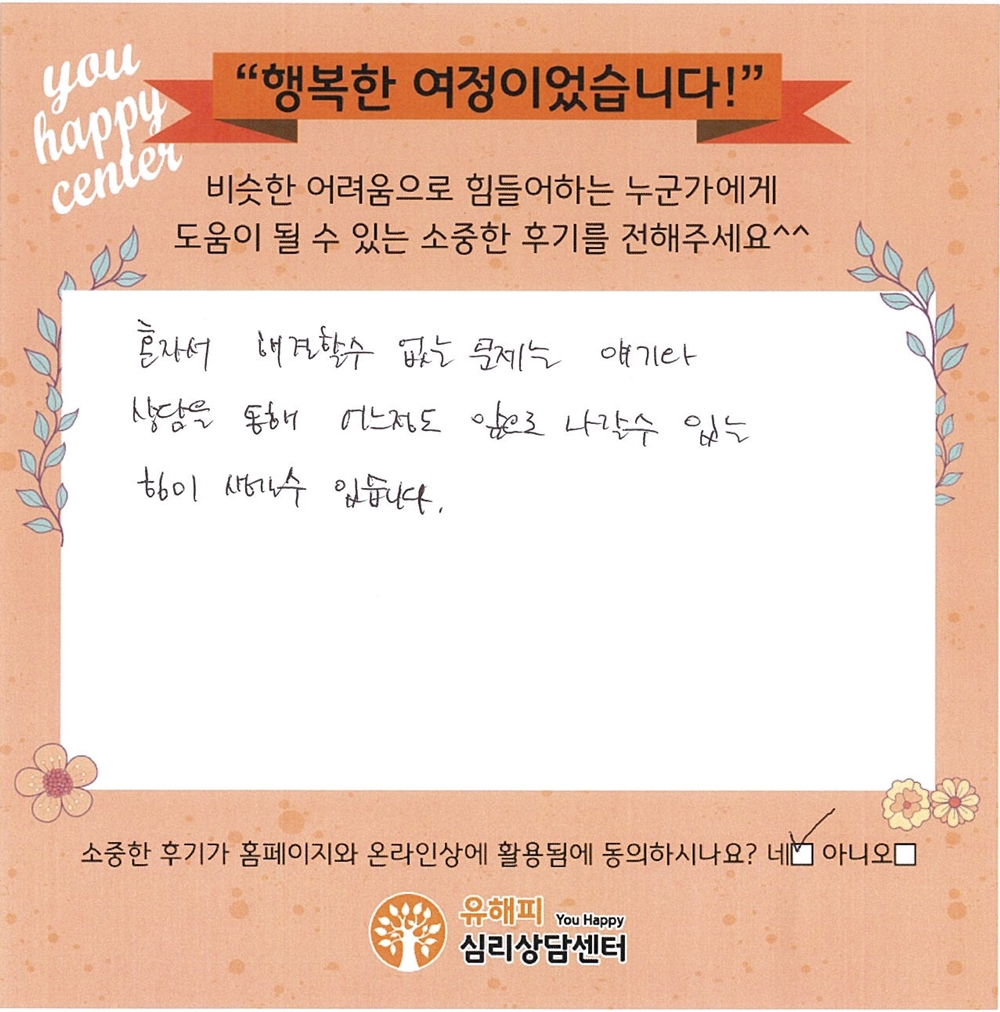 you
happy
center
“행복한 여정이었습니다!”
비슷한 어려움으로 힘들어하는 누군가에게
도움이 될 수 있는 소중한 후기를 전해주세요^^
혼자서 해결할수 없는 문제는 얘기나
상담을 통해 어느정도 앞으로 나갈수 있는
힘이 생길수 있습니다.
소중한 후기가 홈페이지와 온라인상에 활용됨에 동의하시나요? 네 아니오
유해피 You Happy
심리상담센터